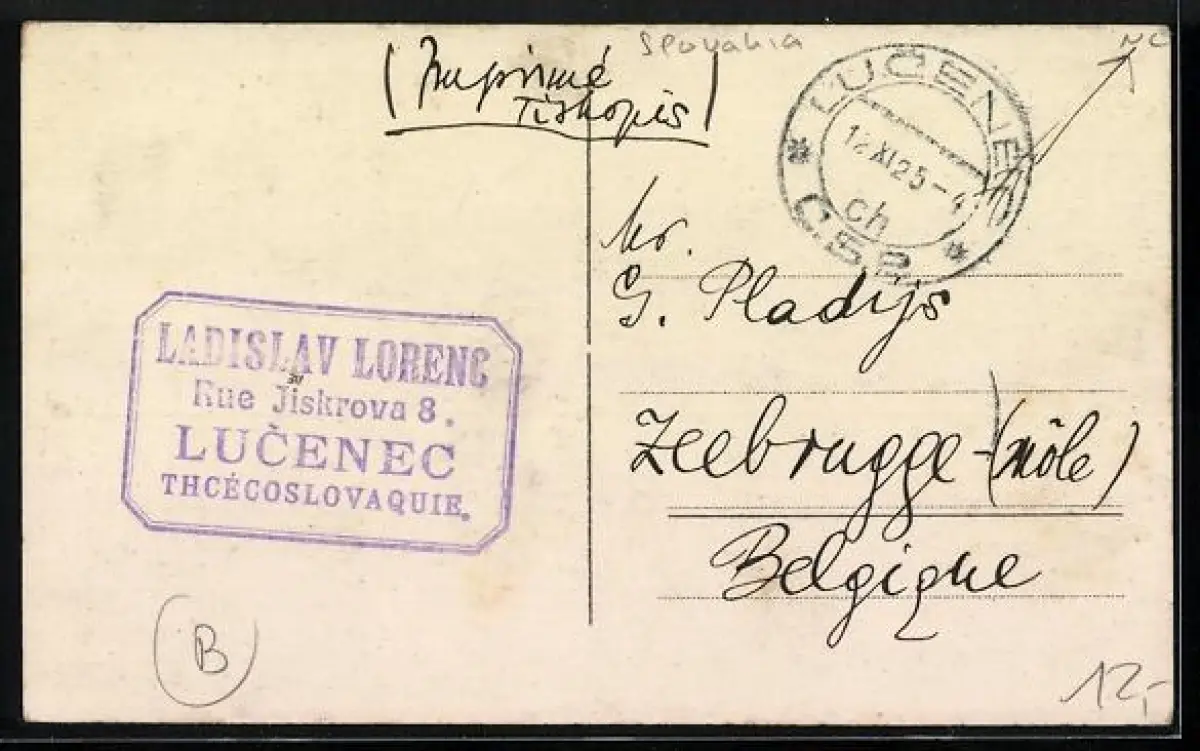 Slovakia
(Imprimé
Tiskopis)
NC
LUČENEC
12.XI.25-4
ch
Č.S.R.
Mr.
G. Pladijs
Zeebrugge-(môle)
Belgique
LADISLAV LORENC
Rue Jiskrova 8.
LUČENEC
THCÉCOSLOVAQUIE.
B
12,-